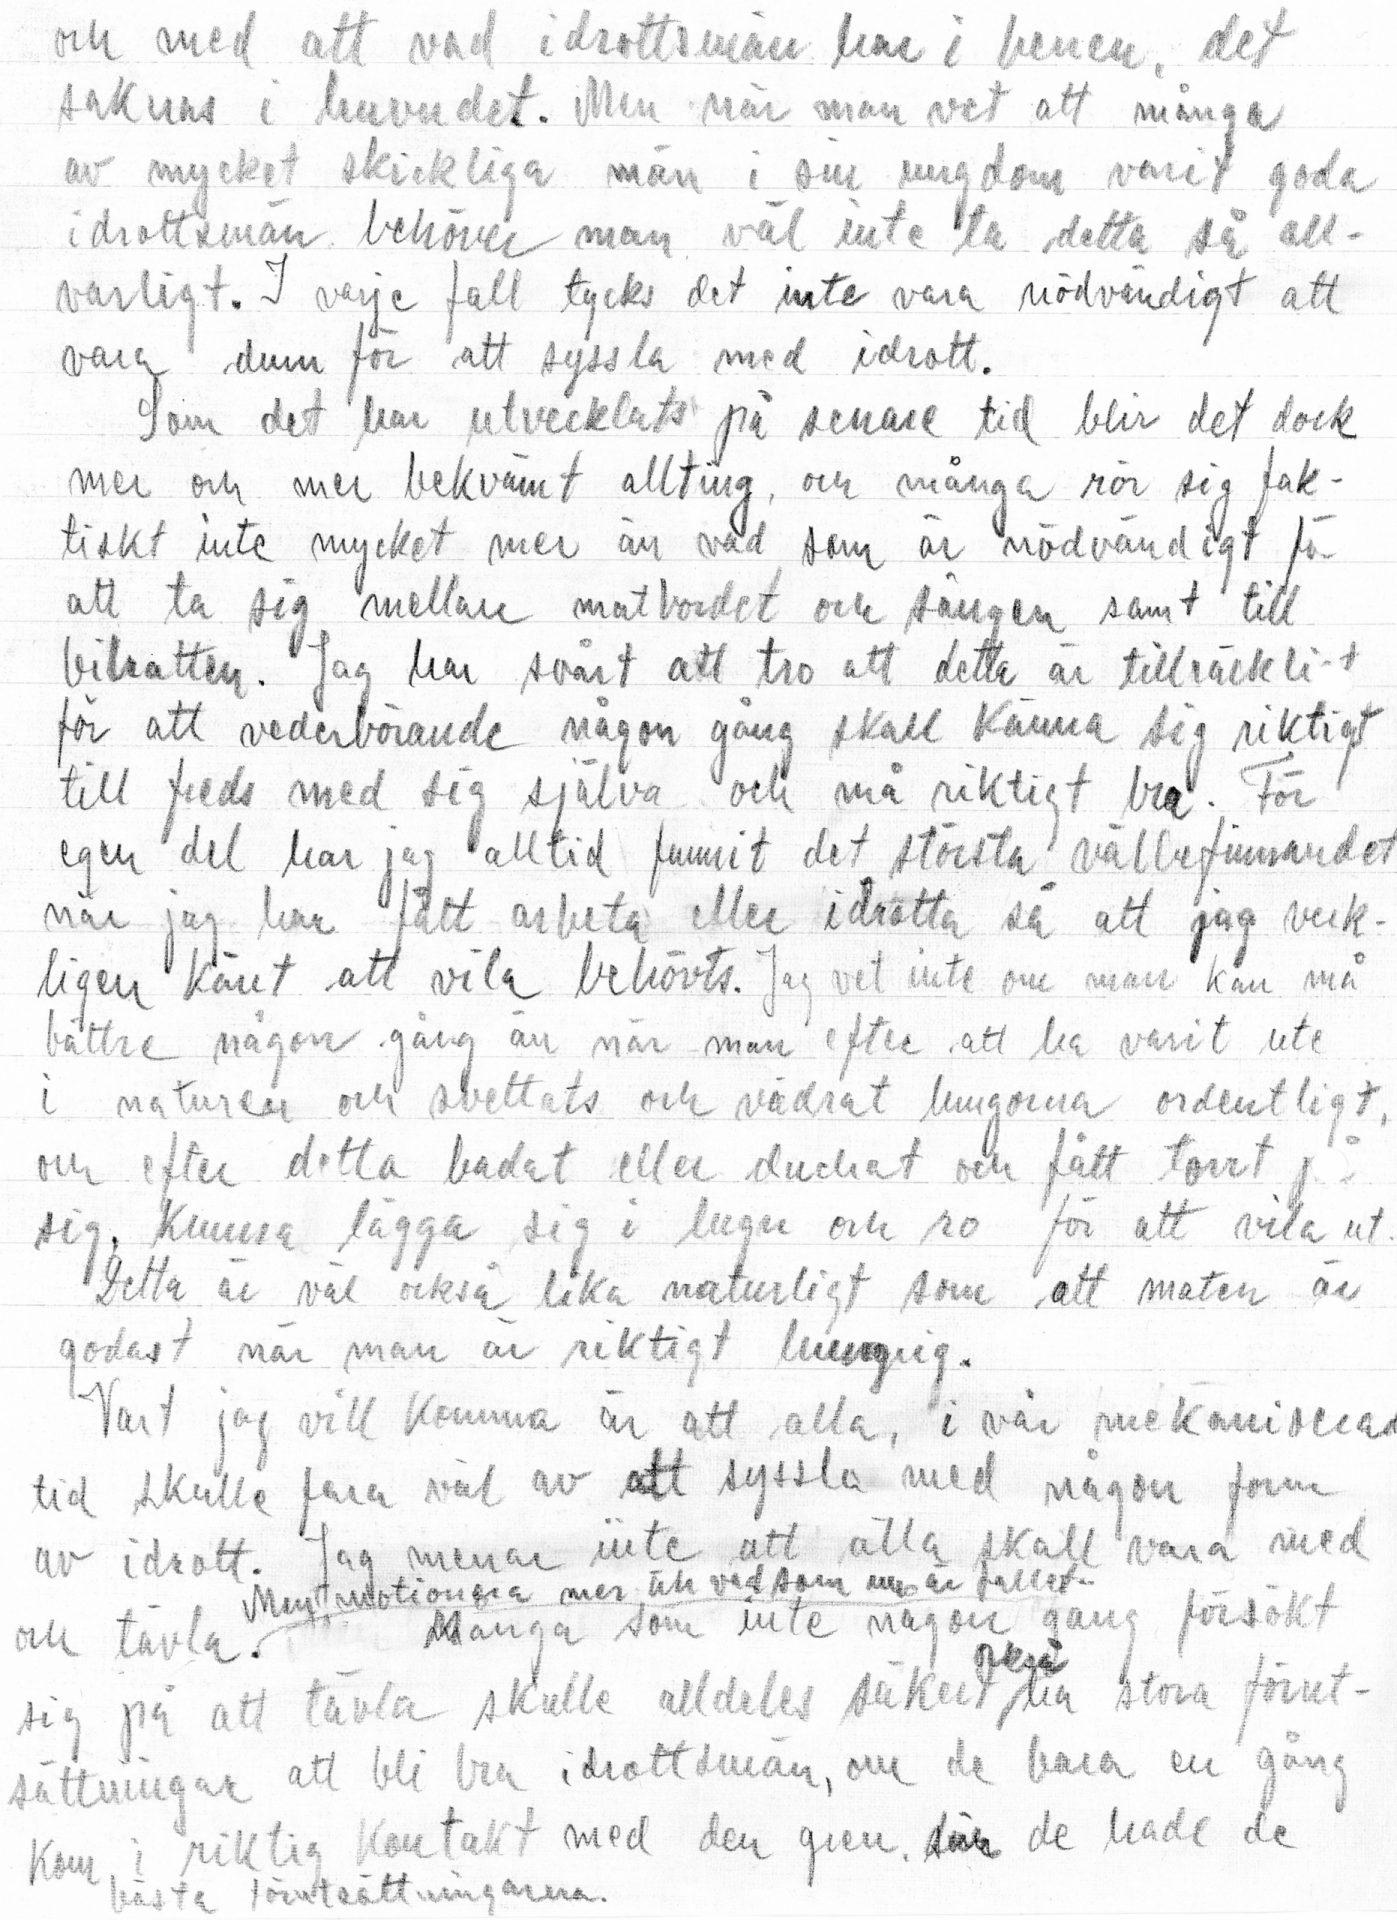 och med att vad idrottsmän har i benen, det
saknas i huvudet. Men när man vet att många
av mycket skickliga män i sin ungdom varit goda
idrottsmän behöver man väl inte ta detta så all-
varligt. I varje fall tycks det inte vara nödvändigt att
vara dum för att syssla med idrott.
Som det har utvecklats på senare tid blir det dock
mer och mer bekvämt allting, och många rör sig fak-
tiskt inte mycket mer än vad som är nödvändigt för
att ta sig mellan matbordet och sängen samt till
bilratten. Jag har svårt att tro att detta är tillräckligt
för att vederbörande någon gång skall känna sig riktigt
till freds med sig själva och må riktigt bra. För
egen del har jag alltid funnit det största välbefinnandet
när jag har fått arbeta eller idrotta så att jag verk-
ligen känt att vila behövts. Jag vet inte om man kan må
bättre någon gång än när man efter att ha varit ute
i naturen och svettats och vädrat lungorna ordentligt,
och efter detta badat eller duchat och fått torrt på
sig, kunna lägga sig i lugn och ro för att vila ut.
Detta är väl också lika naturligt som att maten är
godast när man är riktigt hungrig.
Vart jag vill komma är att alla, i vår mekaniserad
tid skulle fara väl av att syssla med någon form
av idrott. Jag menar inte att alla skall vara med
Men motionera mer än vad som nu är fallet.
och tävla. Många som inte någon gång försökt
också
sig på att tävla skulle alldeles säkert ha stora förut-
sättningar att bli bra idrottsmän, om de bara en gång
kom i riktig kontakt med den gren, där de hade de
bästa förutsättningarna.